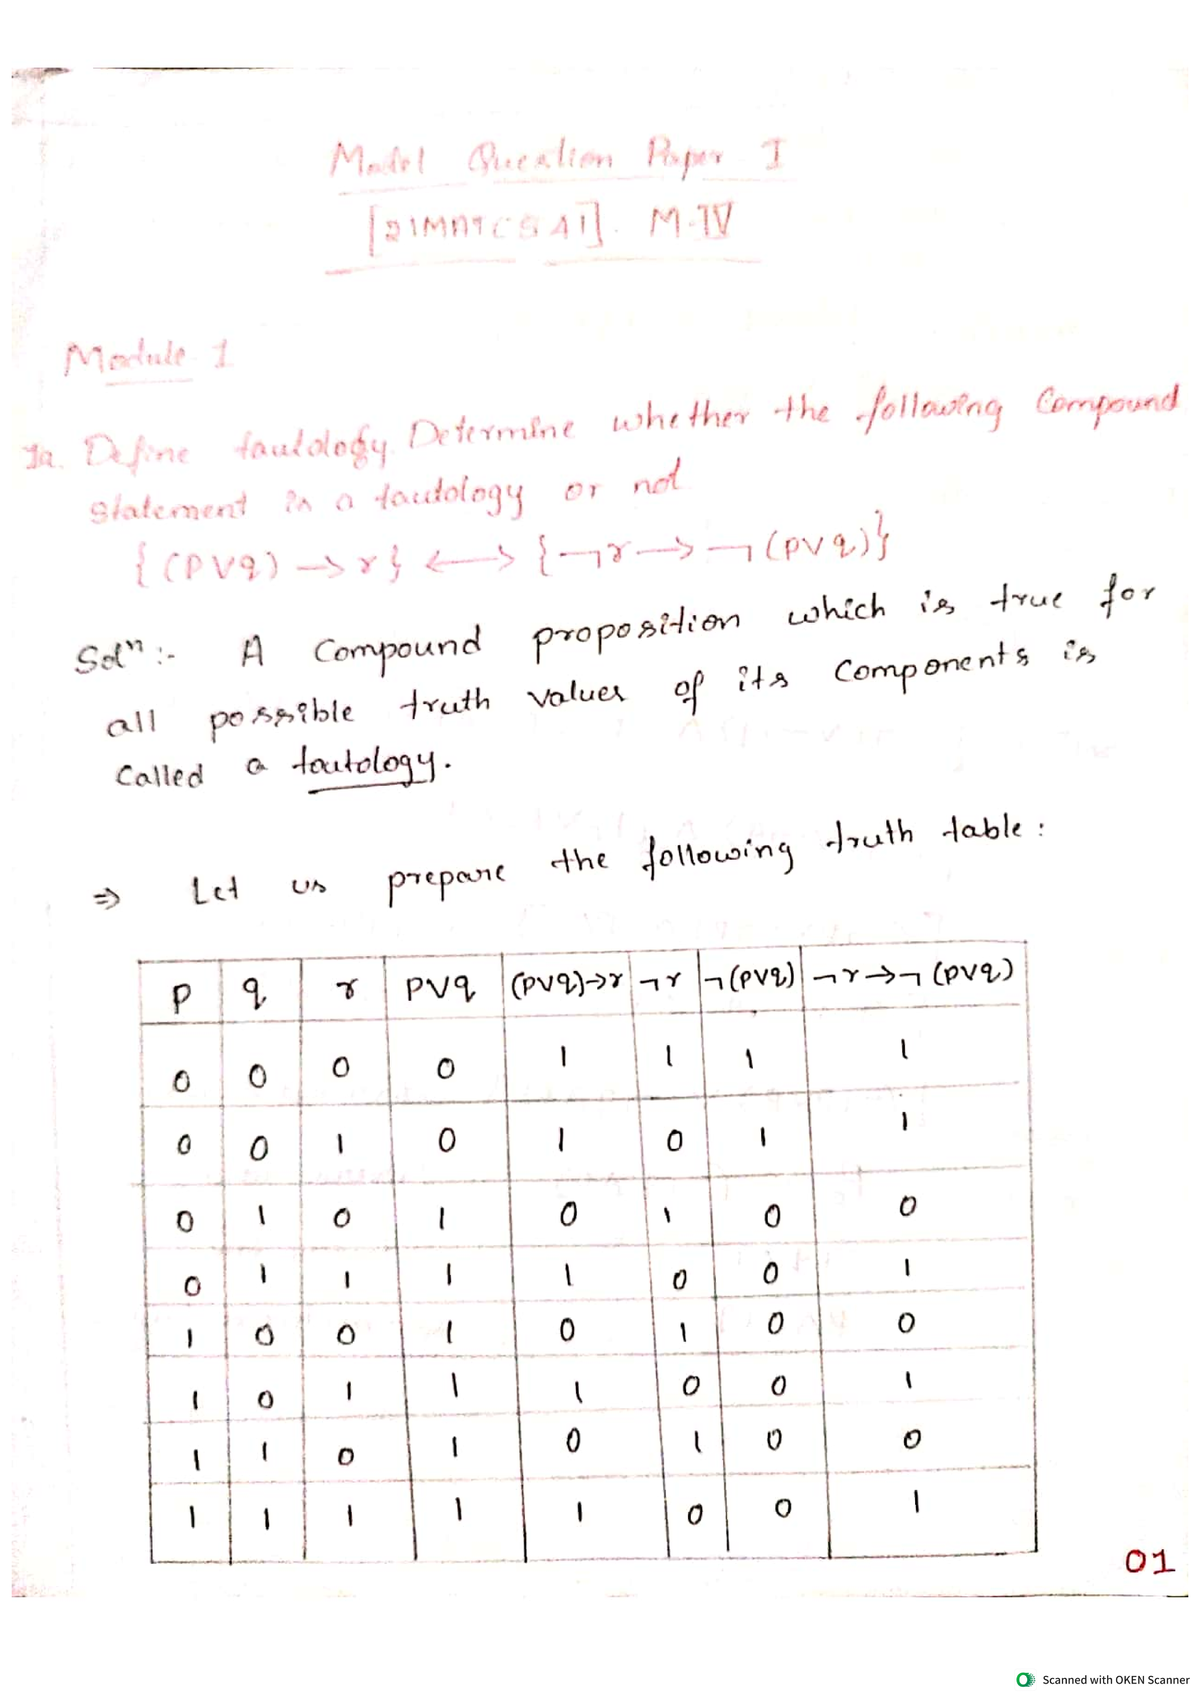 Model Question Paper I
[21MATCS41]. M-IV
Module 1
1a. Define tautology. Determine whether the following Compound
statement is a tautology or not
{(p∨q) → r} ⟷ {¬r → ¬(p∨q)}
Solⁿ :- A Compound proposition which is true for
all possible truth values of its components is
Called a tautology.
⇒ Let us prepare the following truth table :
p q r p∨q (p∨q)→r ¬r ¬(p∨q) ¬r→¬(p∨q)
0 0 0 0 1 1 1 1
0 0 1 0 1 0 1 1
0 1 0 1 0 1 0 0
0 1 1 1 1 0 0 1
1 0 0 1 0 1 0 0
1 0 1 1 1 0 0 1
1 1 0 1 0 1 0 0
1 1 1 1 1 0 0 1
01
Scanned with OKEN Scanner